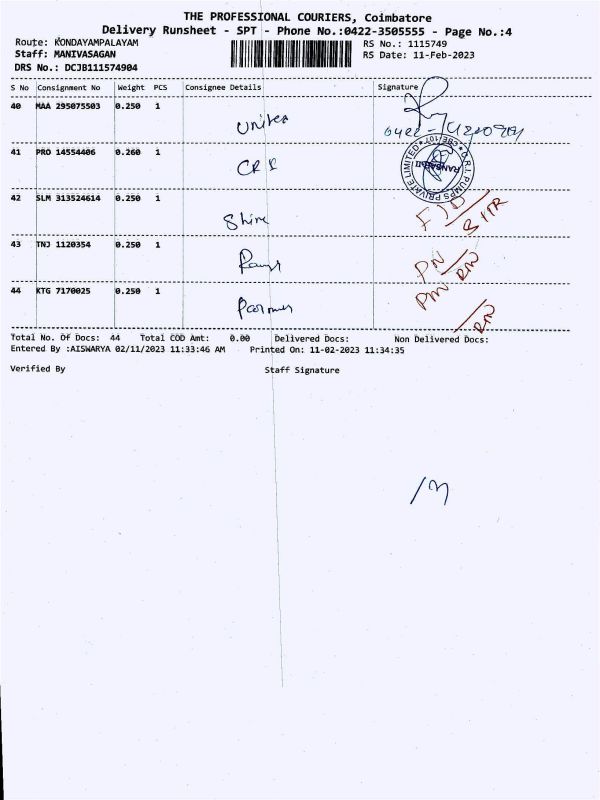 THE PROFESSIONAL COURIERS, Coimbatore
Delivery Runsheet - SPT - Phone No.:0422-3505555 - Page No.:4
Route: KONDAYAMPALAYAM RS No.: 1115749
Staff: MANIVASAGAN RS Date: 11-Feb-2023
DRS No.: DCJB111574904
S No Consignment No Weight PCS Consignee Details Signature
40 MAA 295075503 0.250 1
0422-
41 PRO 14554406 0.260 1 CRI
C.R.I. PUMPS PRIVATE LIMITED
CBE/107
42 SLM 313524614 0.250 1 Shire
43 TNJ 1120354 0.250 1
PN/
44 KTG 7170025 0.250 1
Total No. Of Docs: 44 Total COD Amt: 0.00 Delivered Docs: Non Delivered Docs:
Entered By :AISWARYA 02/11/2023 11:33:46 AM Printed On: 11-02-2023 11:34:35
Verified By Staff Signature